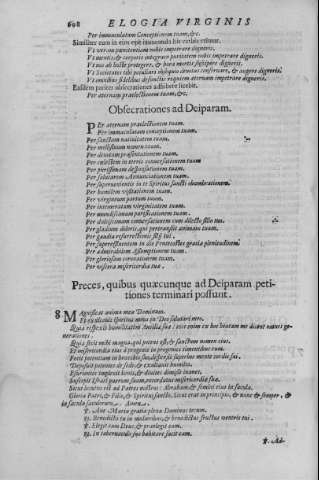 608 ELOGIA VIRGINIS
Per immaculatam Conceptionem tuam, &c.
Similiter cum in eius ope immorandi his vtilis erit
Vt veram pœnitentiam nobis impetrare digneris.
Vt mentis, & corporis integram puritatem nobis impetrare digneris.
Vt nos ab hoste protegere, & hora mortis suscipere digneris.
Vt Societatis tibi peculiari obsequio deuotae conseruare, & augere digneris.
Vt omnibus fidelibus defunctis requiem aeternam impetrare digneris.
Easdem pariter obsecrationes adhibere licebit.
Per aeternam praelectionem tuam, &c.
Obsecrationes ad Deiparam.
PEr aeternam praelectionem tuam.
Per immaculatam conceptionem tuam.
Per sanctam natiuitatem tuam.
Per mellifluum nomen tuum.
Per deuotam praesentationem tuam.
Per caelestem in templo conuersationem tuam
Per purissimam desponsationem tuam.
Per salutarem Annunciationem tuam.
Per superuenientis in te Spiritus sancti obumbrationem.
Per humilem visitationem tuam.
Per virgineum partum tuum.
Per intemeratam virginitatem tuam.
Per mundissimam purificationem tuam.
Per dulcissimam conuersationem cum dilecto filio tuo.
Per gladium doloris, qui pertransijt animam tuam.
Per gaudia resurrectionis filij tui.
Per superexcellentem in die Pentecostes gratiae plenitudinem.
Per admirabilem Assumptionem tuam.
Per gloriosam coronationem tuam.
Per viscera misericordiae tuae.
Preces, quibus quæcunque ad Deiparam peti-
tiones terminari possunt.
8 MAgnificat anima mea Dominum.
Et exultauit spiritus meus in Deo salutari meo.
Quia respexit humilitatem Ancillae suae: ecce enim ex hoc beatam me dicent omnes ge-
nerationes.
Quia fecit mihi magna, qui potens est, & sanctum nomen eius.
Et misericordia eius à progenie in progenies timentibus eum.
Fecit potentiam in brachio suo, dispersit superbos mente cordis sui.
Deposuit potentes de sede, & exaltauit humiles.
Esurientes impleuit bonis, & diuites dimisit inanes.
Suscepit Israel puerum suum, recordatus misericordiae suae.
Sicut locutus est ad Patres nostros: Abraham, & semini eius in saecula.
Gloria Patri, & Filio, & Spiritui sancto. Sicut erat in principio, & nunc & semper, &
in saecula saeculorum. Amen.
℣. Aue Maria gratia plena Dominus tecum.
℟. Benedicta tu in mulieribus, & benedictus fructus ventris tui.
℣. Elegit eam Deus, & praelegit eam.
℟. In tabernaculo suo habitare facit eam.
℣. Ad-